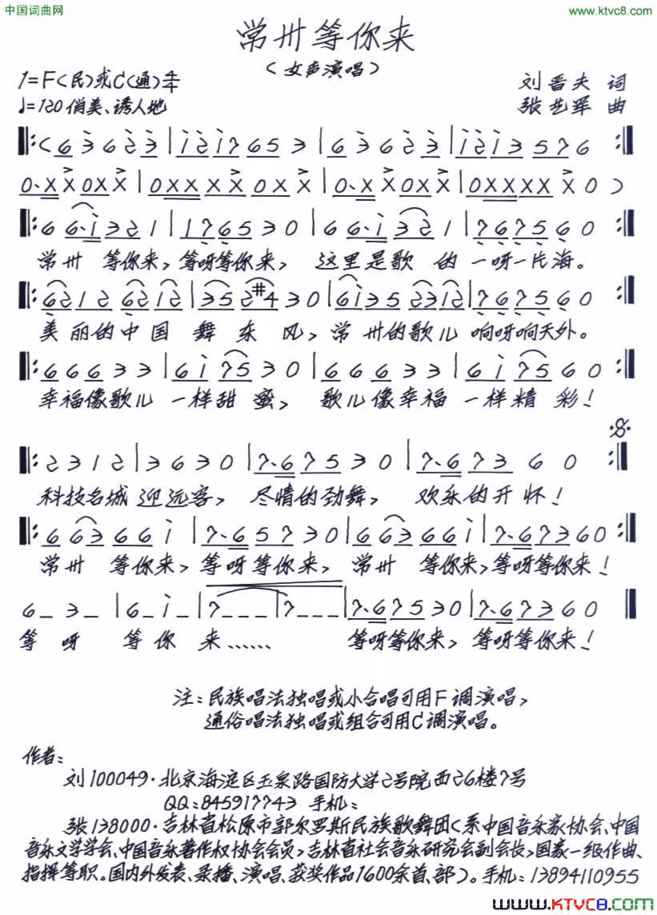 中国词曲网
www.ktvc8.com
常州等你来
(女声演唱)
1=F(民)或C(通)4/4
刘晋夫 词
♩=120 俏美、诱人地
张艺军 曲
‖:(6 3 6 2 3 |1 2 1 7 6 5 3 |6 3 6 2 3 |1 2 1 3 5 7 6 :‖
0·X X 0X X |0X X X X 0X X |0·X X 0X X |0X X X X X 0 )
‖:6 6·1 3 2 1 |1 7 6 5 3 0 |6 6·1 3 2 1 |7 6 7 5 6 0 :‖
常州 等你来,等呀等你来, 这里是歌 的 一呀一片海。
‖:6 2 1 2 6 2 1 2 |3 5 2 #4 3 0 |6 1 3 5 2 3 1 2 |7 6 7 5 6 0 :‖
美丽的中国 舞 东 风,常 州的歌儿 响呀响天外。
‖:6 6 6 3 3 |6 1 7 5 3 0 |6 6 6 3 3 |6 1 7 5 6 0 :‖
幸福像歌儿 一样甜 蜜, 歌儿像幸福 一样精 彩!
‖:2 3 1 2 |3 6 3 0 |7·6 7 5 3 0 |7·6 7 3 6 0 :‖
科技名城 迎远客, 尽情的劲舞, 欢乐的开怀!
‖:6 6 3 6 6 1 |7·6 5 7 3 0 |6 6 3 6 6 1 |7·6 7 3 6 0 :‖
常州 等你来,等呀等你来,常州 等你来,等呀等你来!
6 - 3 - |6 - 1 - |7 - - - |7 - - - |7·6 7 5 3 0 |7·6 7 3 6 0 :‖
等 呀 等 你 来…… 等呀等你来,等呀等你来!
注:民族唱法独唱或小合唱可用F调演唱,
通俗唱法独唱或组合可用C调演唱。
作者:
刘100049·北京海淀区玉泉路国防大学2号院西26楼7号
QQ:845917743 手机:
张138000·吉林省松原市郭尔罗斯民族歌舞团(系中国音乐家协会、中国
音乐文学学会、中国音乐著作权协会会员,吉林省社会音乐研究会副会长,国家一级作曲、
指挥等职。国内外发表、录播、演唱、获奖作品1600余首、部)。手机:13894110955
www.KTVC8.com